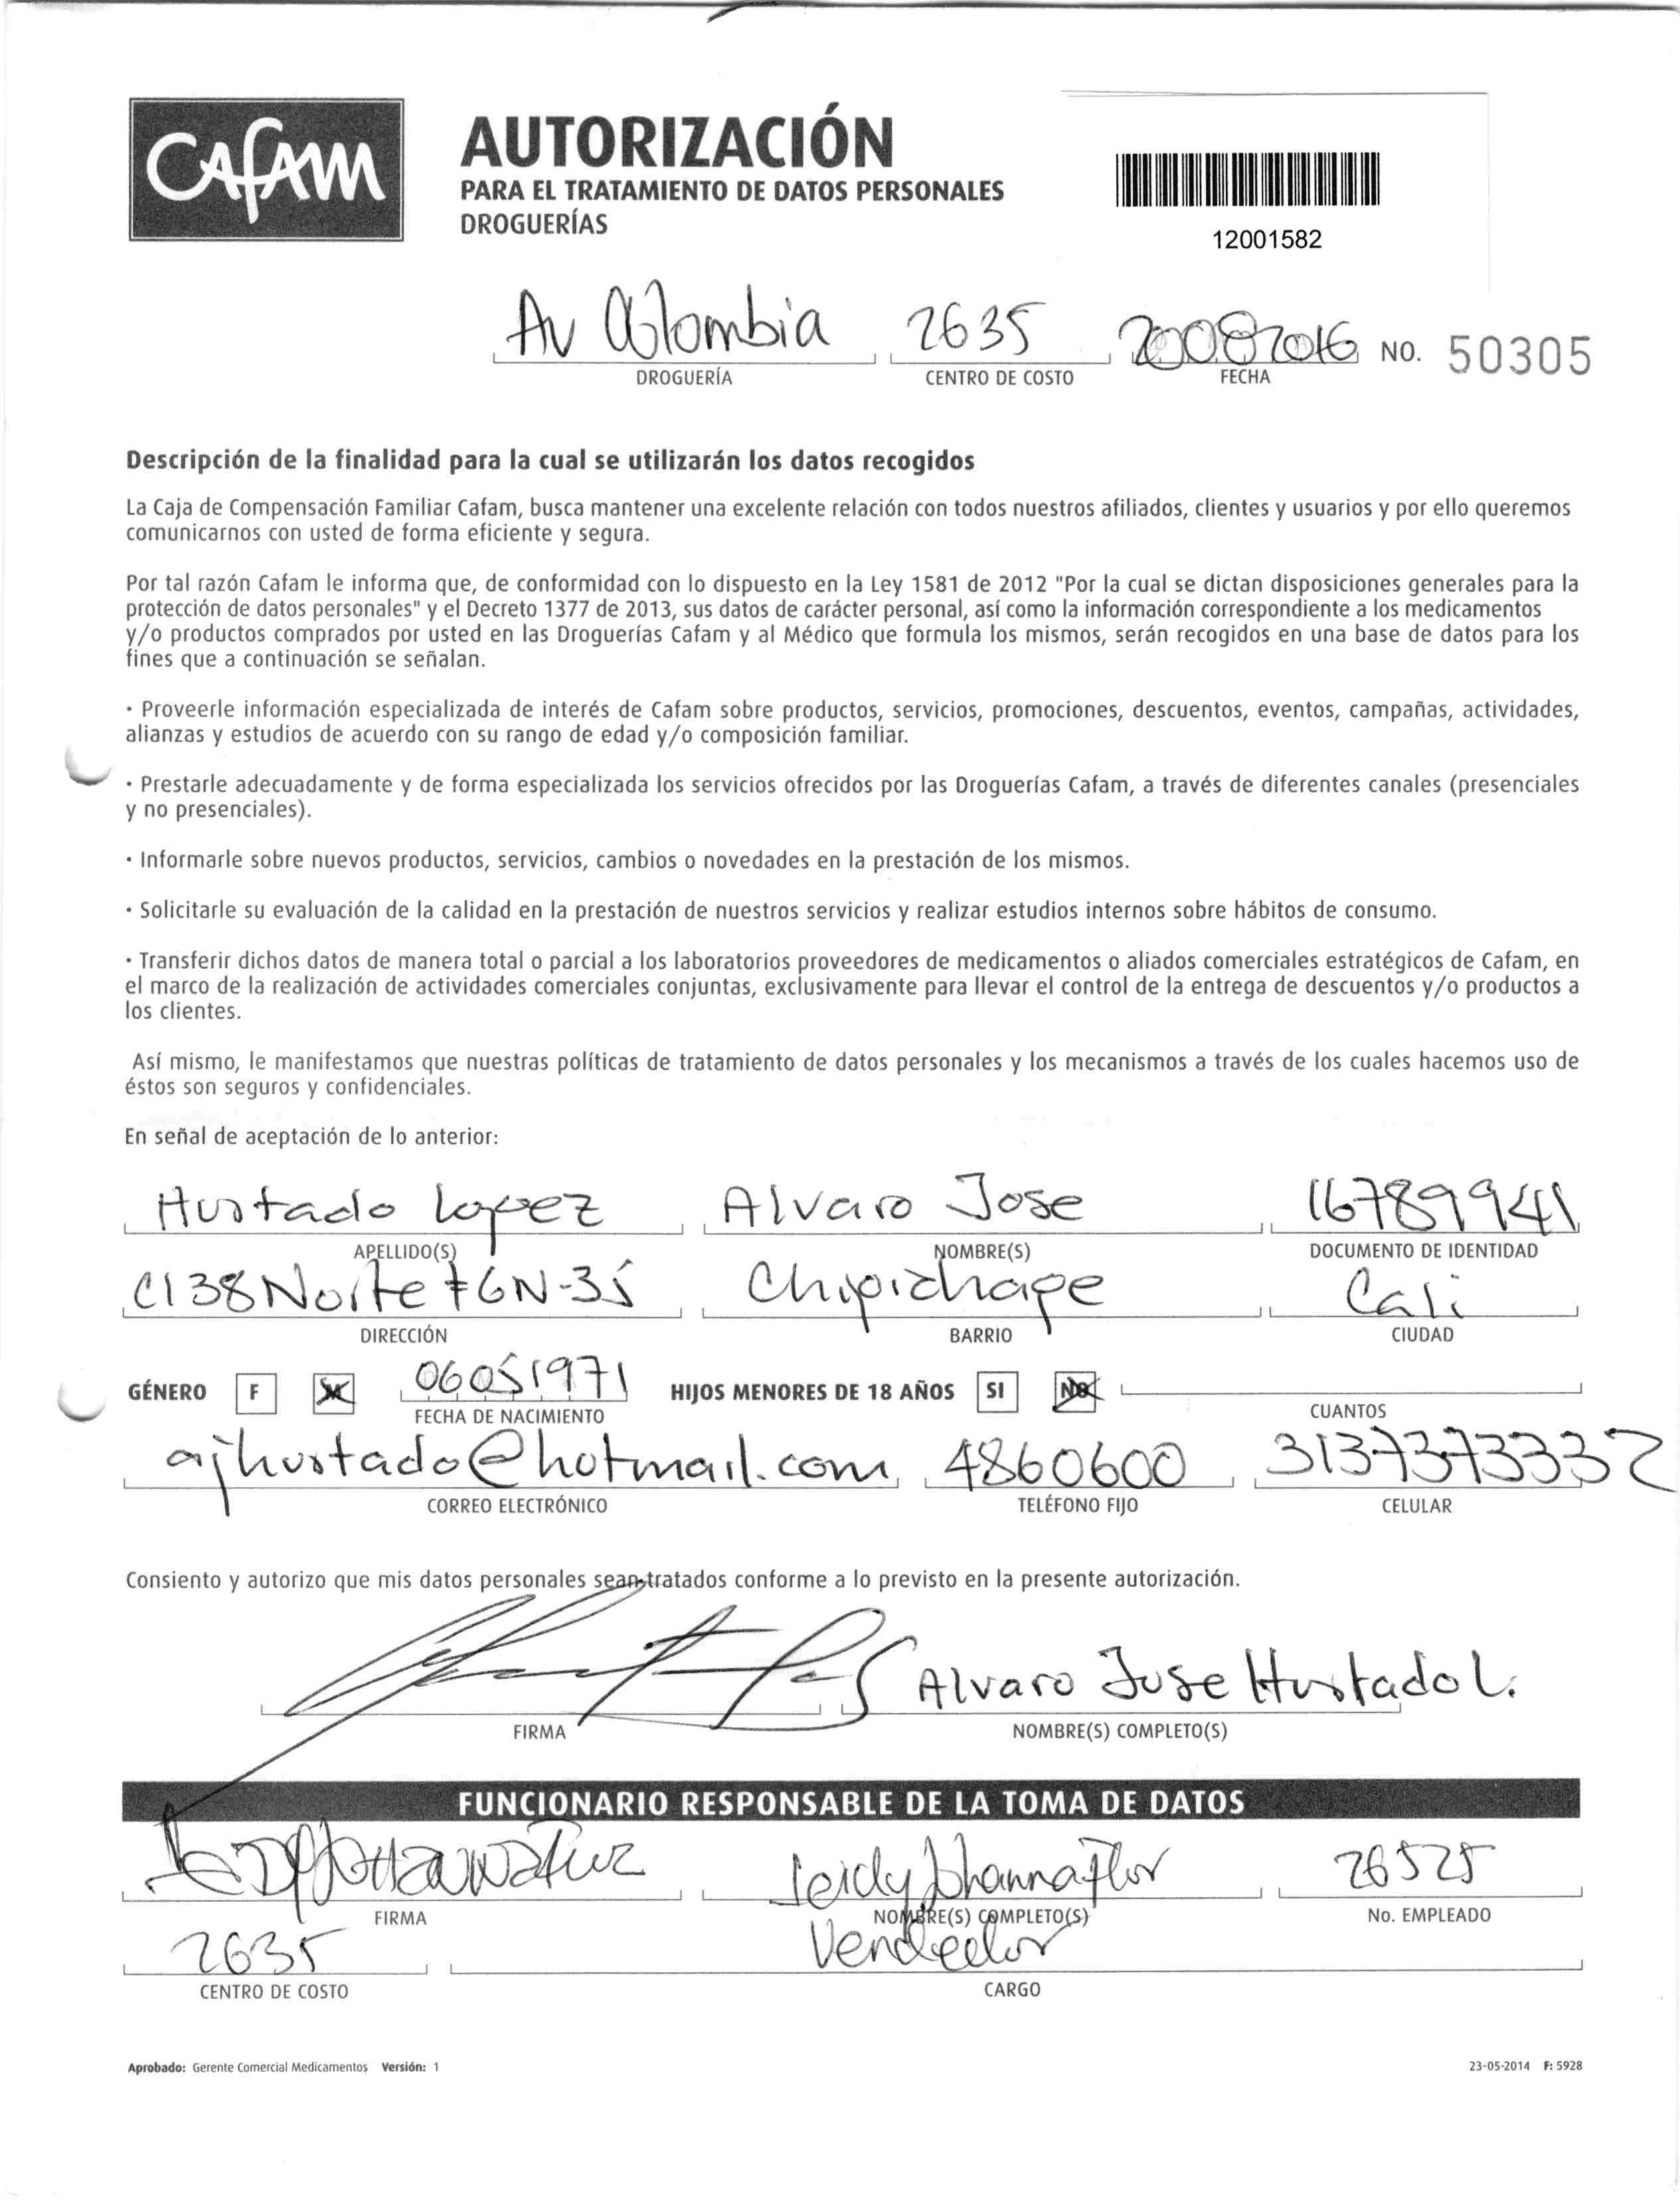 Cafam
AUTORIZACIÓN
PARA EL TRATAMIENTO DE DATOS PERSONALES
DROGUERÍAS
12001582
Av Colombia 2635 20082016 NO. 50305
DROGUERÍA CENTRO DE COSTO FECHA
Descripción de la finalidad para la cual se utilizarán los datos recogidos
La Caja de Compensación Familiar Cafam, busca mantener una excelente relación con todos nuestros afiliados, clientes y usuarios y por ello queremos
comunicarnos con usted de forma eficiente y segura.
Por tal razón Cafam le informa que, de conformidad con lo dispuesto en la Ley 1581 de 2012 "Por la cual se dictan disposiciones generales para la
protección de datos personales" y el Decreto 1377 de 2013, sus datos de carácter personal, así como la información correspondiente a los medicamentos
y/o productos comprados por usted en las Droguerías Cafam y al Médico que formula los mismos, serán recogidos en una base de datos para los
fines que a continuación se señalan.
· Proveerle información especializada de interés de Cafam sobre productos, servicios, promociones, descuentos, eventos, campañas, actividades,
alianzas y estudios de acuerdo con su rango de edad y/o composición familiar.
· Prestarle adecuadamente y de forma especializada los servicios ofrecidos por las Droguerías Cafam, a través de diferentes canales (presenciales
y no presenciales).
· Informarle sobre nuevos productos, servicios, cambios o novedades en la prestación de los mismos.
· Solicitarle su evaluación de la calidad en la prestación de nuestros servicios y realizar estudios internos sobre hábitos de consumo.
· Transferir dichos datos de manera total o parcial a los laboratorios proveedores de medicamentos o aliados comerciales estratégicos de Cafam, en
el marco de la realización de actividades comerciales conjuntas, exclusivamente para llevar el control de la entrega de descuentos y/o productos a
los clientes.
Así mismo, le manifestamos que nuestras políticas de tratamiento de datos personales y los mecanismos a través de los cuales hacemos uso de
éstos son seguros y confidenciales.
En señal de aceptación de lo anterior:
Hurtado Lopez Alvaro Jose 16789941
APELLIDO(S) NOMBRE(S) DOCUMENTO DE IDENTIDAD
Cl 38 Norte # 6N-35 Chipichape Cali
DIRECCIÓN BARRIO CIUDAD
GÉNERO F M 06051971 HIJOS MENORES DE 18 AÑOS SI NO
FECHA DE NACIMIENTO CUANTOS
ajhurtado@hotmail.com 4860600 3137373332
CORREO ELECTRÓNICO TELÉFONO FIJO CELULAR
Consiento y autorizo que mis datos personales sean tratados conforme a lo previsto en la presente autorización.
Alvaro Jose Hurtado L.
FIRMA NOMBRE(S) COMPLETO(S)
FUNCIONARIO RESPONSABLE DE LA TOMA DE DATOS
Leidy Jhanna Flor 26525
FIRMA NOMBRE(S) COMPLETO(S) No. EMPLEADO
2635 Vendedor
CENTRO DE COSTO CARGO
Aprobado: Gerente Comercial Medicamentos Versión: 1 23-05-2014 F: 5928